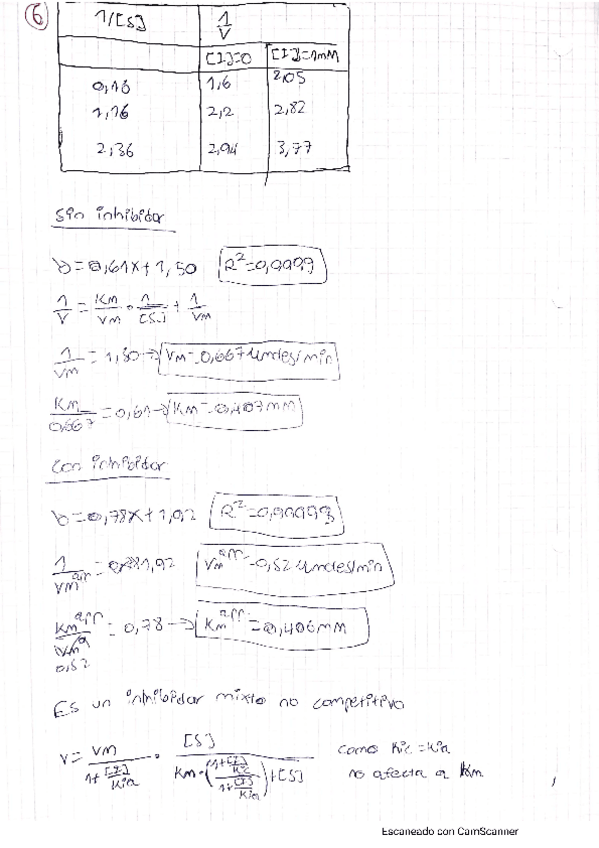 6
1/[S] 1/V
[I]=0 [I]=1mM
0,16 1,6 2,05
1,16 2,2 2,82
2,36 2,94 3,77
Sin inhibidor
y=0,61x+1,50 R²=0,9999
1/V = Km/Vm · 1/[S] + 1/Vm
1/Vm = 1,50 → Vm=0,667 µmoles/min
Km/0,667 = 0,61 → Km=0,407mM
Con inhibidor
y=0,78x+1,92 R²=0,99993
1/Vm^app = 1,92 Vm^app=0,52 µmoles/min
Km^app/Vm^a = 0,78 → Km^app=0,406mM
0,52
Es un inhibidor mixto no competitivo
V = Vm/(1+[I]/Kia) · [S]/(Km·((1+[I]/Kic)/(1+[I]/Kia))+[S]) como Kic=Kia
no afecta a Km
Escaneado con CamScanner